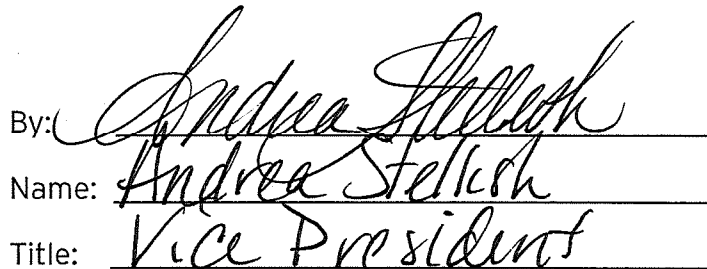 By: Andrea Stellish
Name: Andrea Stellish
Title: Vice President